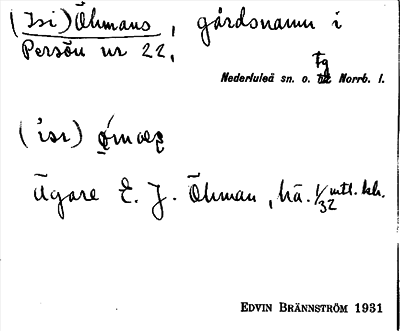 (Isi) Öhmans, gårdsnamn i
Persön nr 22.
Fg
Nederluleå sn. o. Norrb. l.
(isi)
Ägare E. J. Öhman, hä. 1/32 mtl. kh.
EDVIN BRÄNNSTRÖM 1931